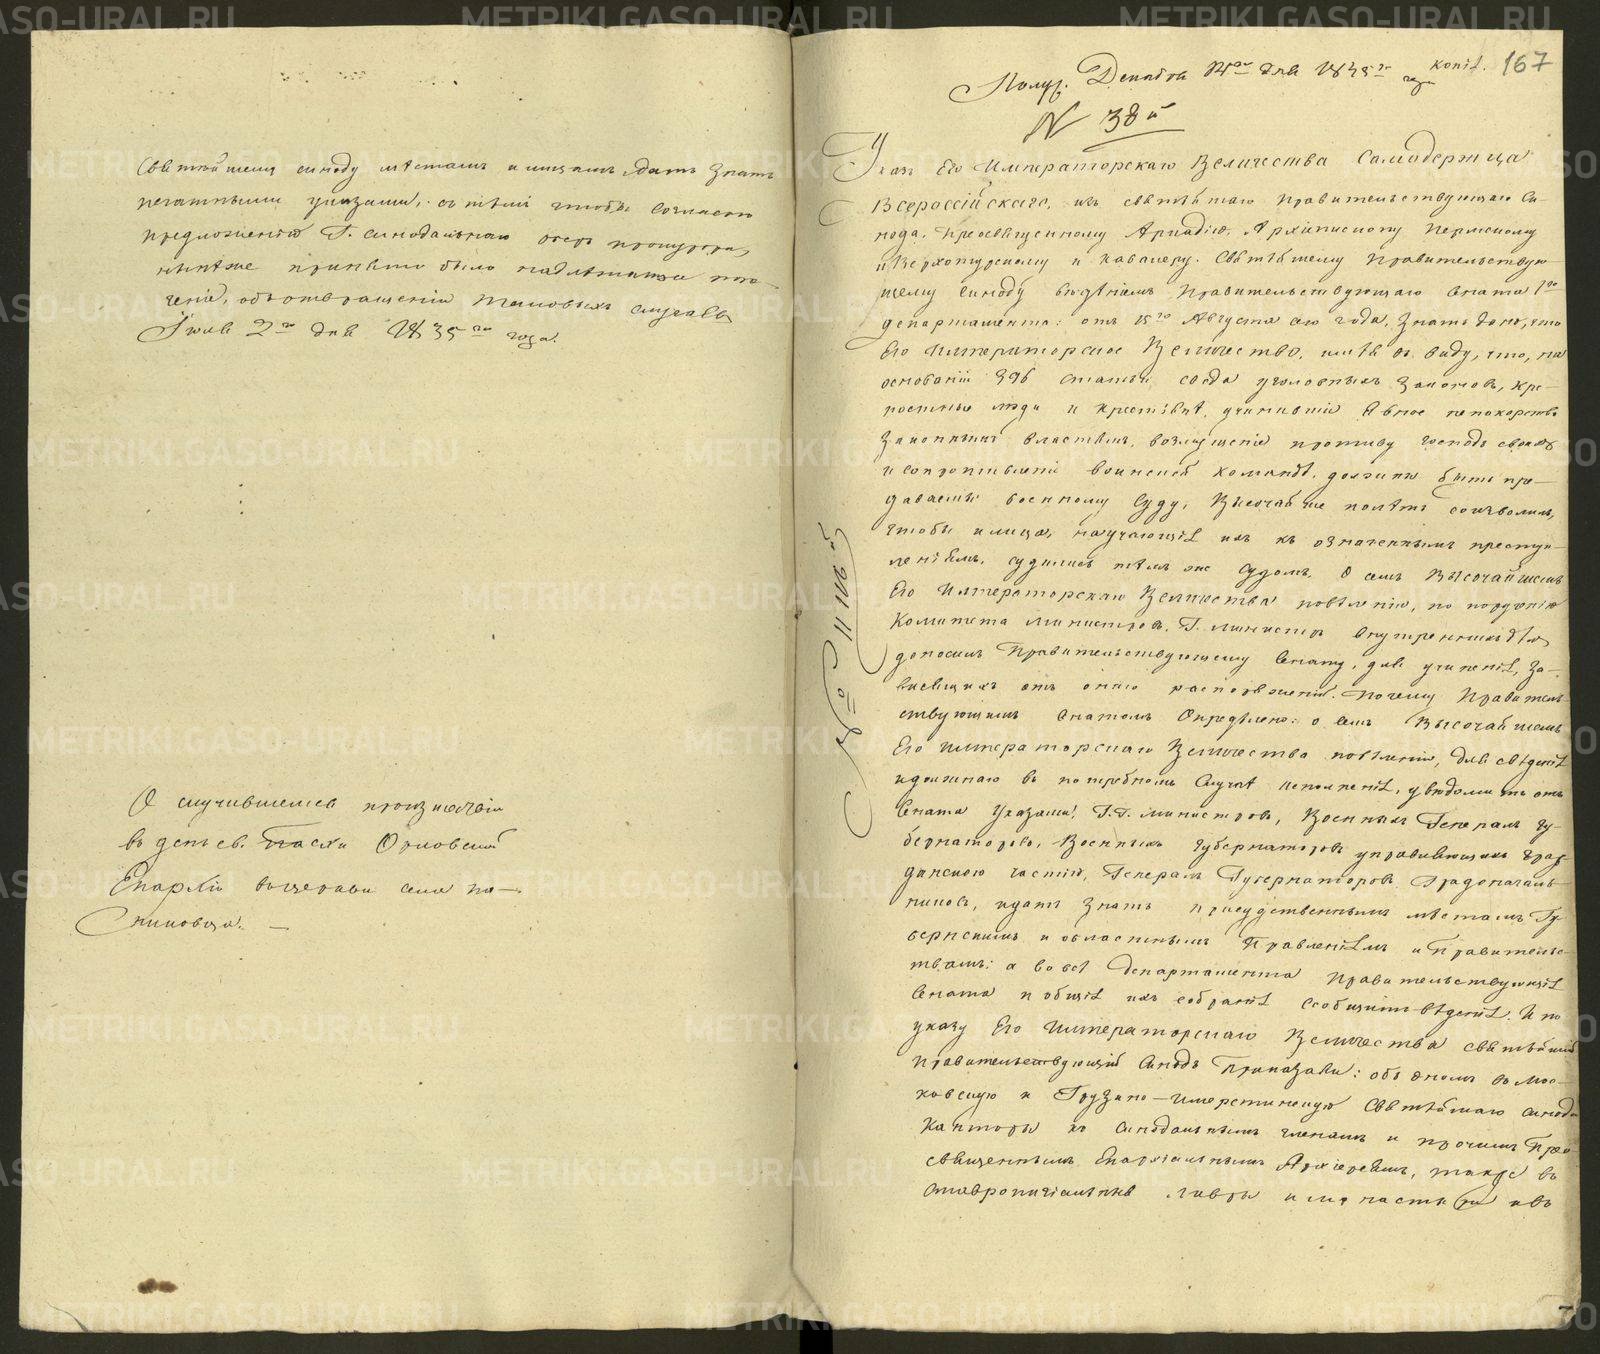 Святѣйшему синоду мѣстамъ и лицамъ дать знать
печатными указами; съ тѣмъ чтобы согласно
предложенію Г. синодальнаго оберъ прокурора,
принято было надлежащее
ченіе, объ отвращеніи таковыхъ случаевъ
Іюля 2го дня 1835го года.
О случившемся произшествіи
въ день св. Пасхи Орловской
Епархіи въ церкви села

Получ. Декабря дня 1835го года копія. 167
N 38й
Указъ Его Императорскаго Величества Самодержца
Всероссійскаго, изъ святѣйшаго правительствующаго Си-
нода, преосвященному Аркадію, Архіепископу Пермскому
и Верхотурскому и кавалеру. Святѣйшему правительствую-
щему синоду вѣдѣніемъ Правительствующаго Сената 1го
департамента: отъ 15го Августа сего года, знать дано, что
Его Императорское Величество, имѣя въ виду, что, на
основаніи 396 статьи свода уголовныхъ законовъ, кре-
постные люди и крестьяне, учинившіе явное непокорство
законнымъ властямъ, возмущеніе противу господъ своихъ
и сопротивленіе воинской командѣ, должны быть пре-
даваемы военному суду, Высочайше повелѣть соизволилъ,
чтобы и лица, научающія ихъ къ означеннымъ преступ-
леніямъ, судились тѣмъ же судомъ. О семъ Высочайшемъ
Его Императорскаго Величества повелѣніи, по порученію
Комитета министровъ, Г. министръ внутреннихъ дѣлъ,
доносилъ Правительствующему Сенату, для учиненія, за-
висящихъ отъ онаго распоряженій. Почему Правитель-
ствующимъ Сенатомъ Опредѣлено: о семъ Высочайшемъ
Его Императорскаго Величества повелѣніи, для свѣденія
и должнаго въ потребномъ случаѣ исполненія, увѣдомить отъ
Сената Указами, Г.Г. министровъ, Военныхъ Генералъ Гу-
бернаторовъ, Военныхъ Губернаторовъ управляющихъ граж-
данскою частію, Генералъ Губернаторовъ, Градоначаль-
никовъ, и дать знать присудственнымъ мѣстамъ Гу-
бернскимъ и областнымъ Правленіямъ и Правительс-
твамъ: а во всѣ Департаменты Правительствующаго
Сената и общія ихъ собранія сообщить вѣденія. И по
указу Его Императорскаго Величества святѣйшій
правительствующій Синодъ Приказали: объ ономъ въ Мос-
ковскую и Грузино-имеретинскую Святѣйшаго синода
Канторы къ Синодальнымъ членамъ и прочимъ Прео-
священнымъ Епархіальнымъ Архіереямъ, также въ
Ставропигіальныя лавры и монастыри и въ